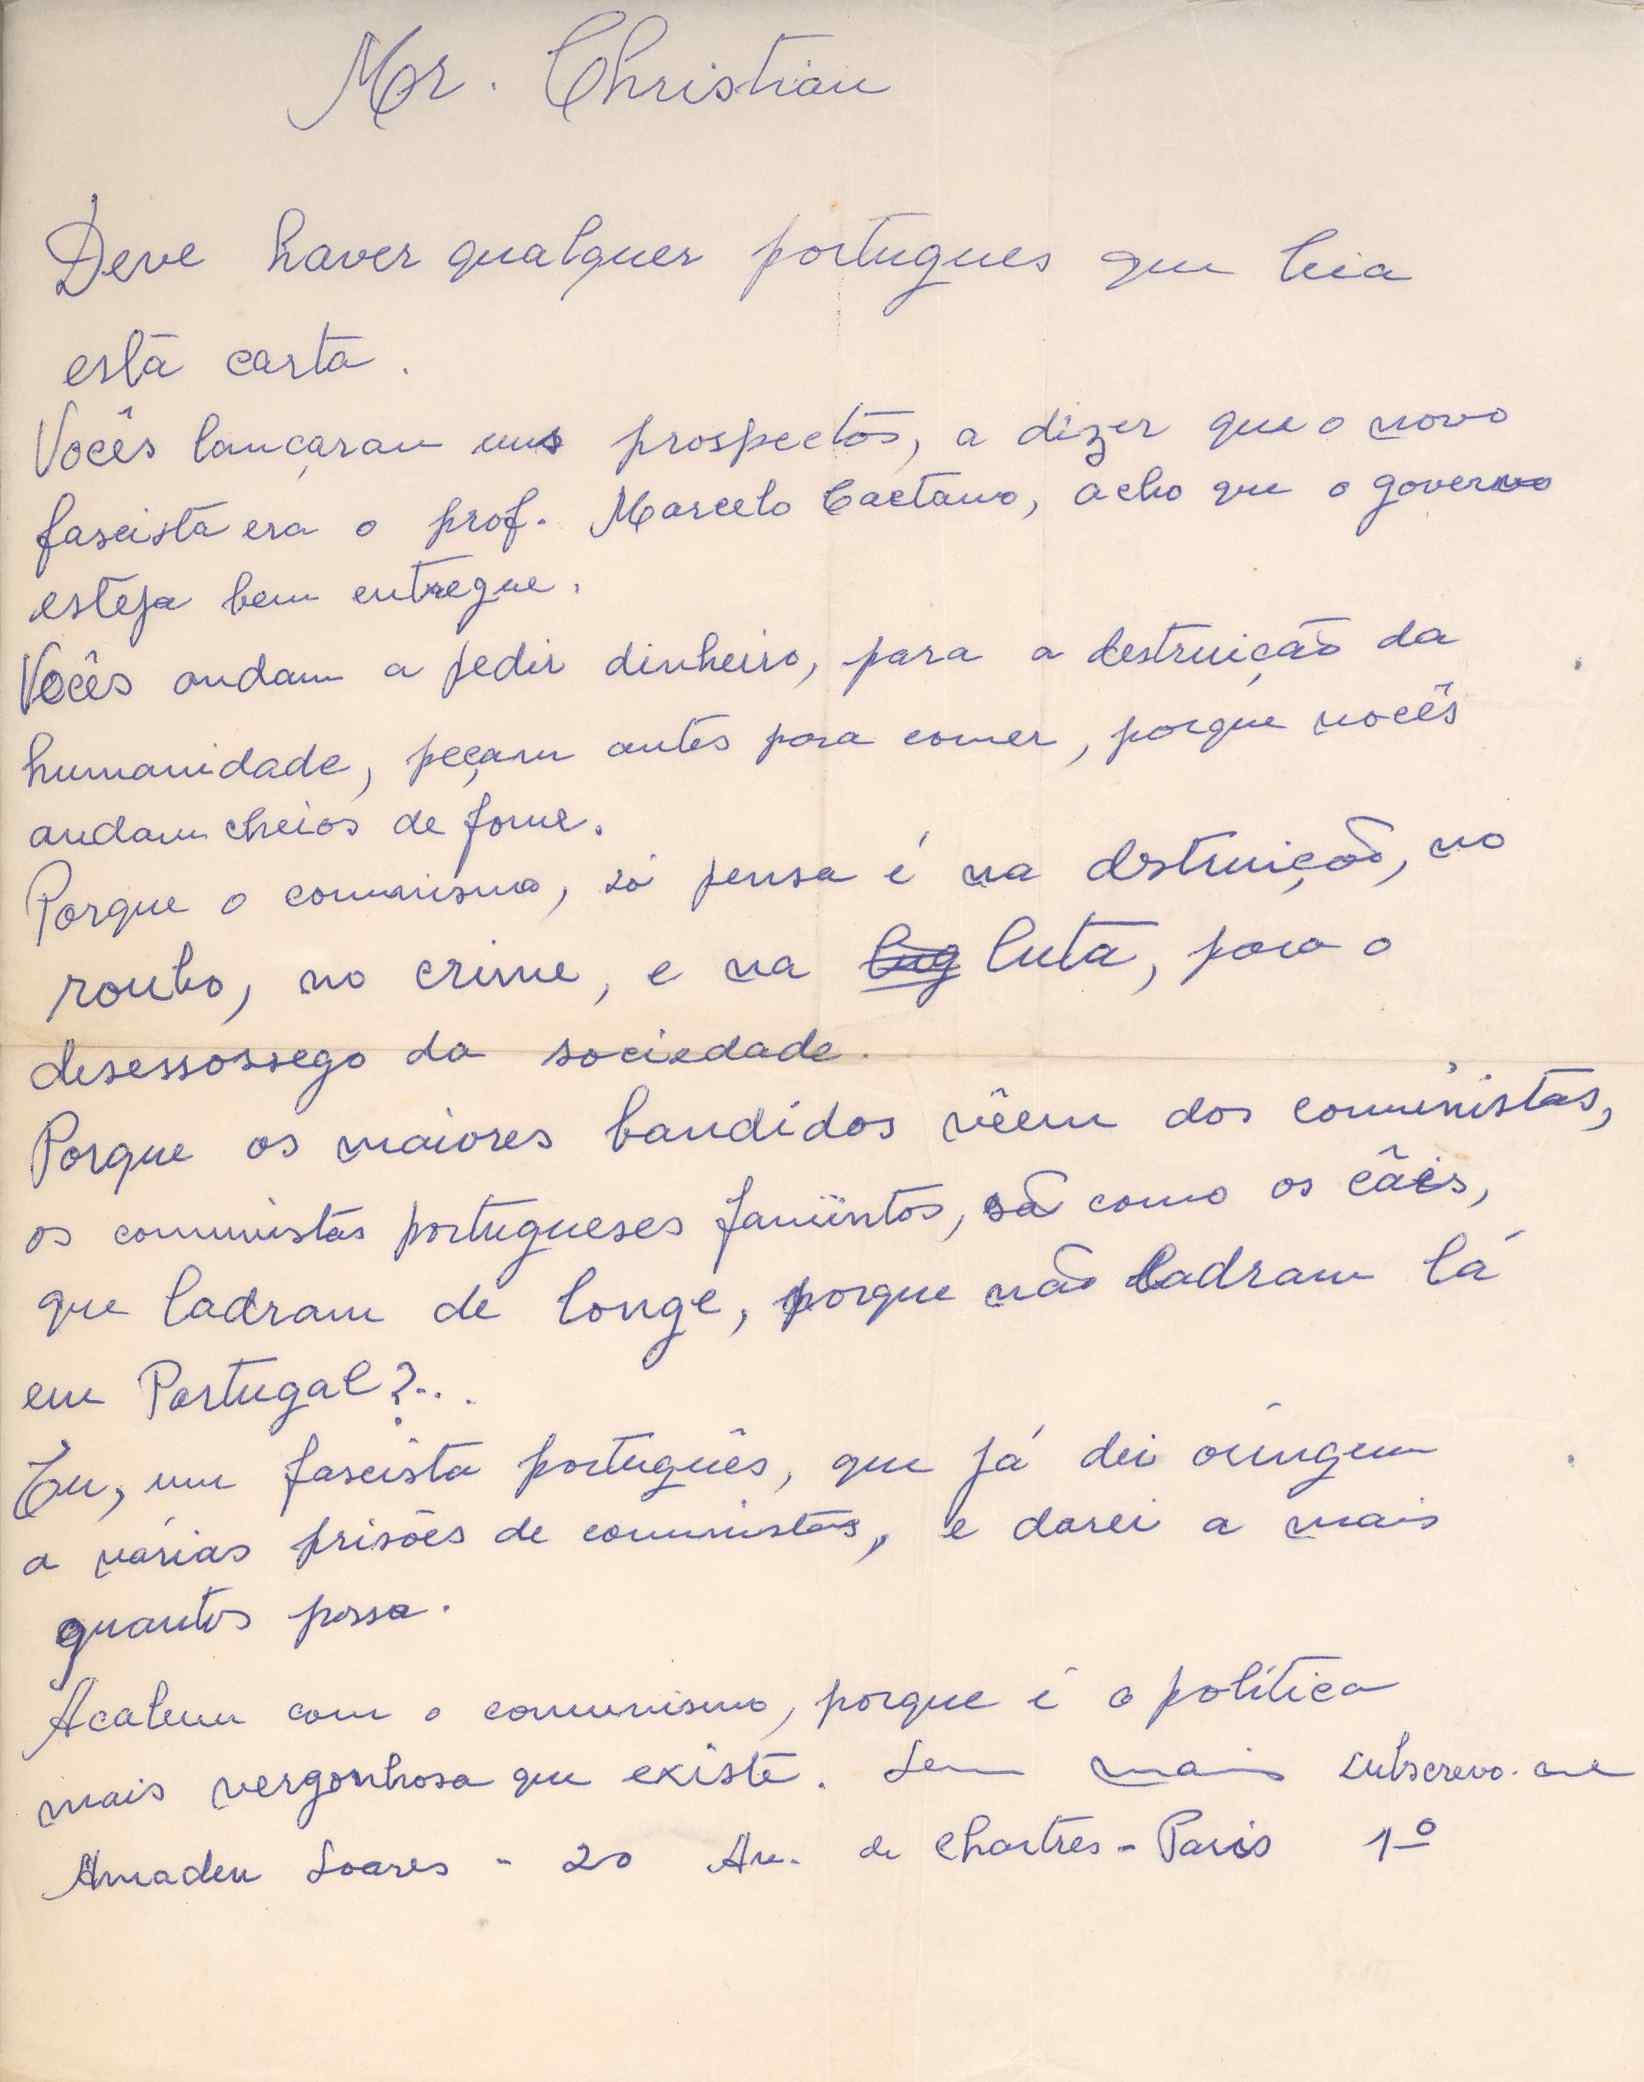 Mr. Christian
Deve haver qualquer portugues que leia
está carta.
Vocês lançaram uns prospectos, a dizer que o novo
fascista era o prof. Marcelo Caetano, acho que o governo
esteja bem entregue.
Vocês andam a pedir dinheiro, para a destruição da
humanidade, peçam antes para comer, porque vocês
andam cheios de fome.
Porque o comunismo, só pensa é na destruição, no
roubo, no crime, e na luta, para o
desessossego da sociedade.
Porque os maiores bandidos vêem dos comunistas,
os comunistas portugueses famintos, sã como os cães,
que ladram de longe, porque não ladram lá
em Portugal?...
Eu, um fascista português, que já dei oringem
a várias prisões de comunistas, e darei a mais
quantos possa.
Acabem com o comunismo, porque é a política
mais vergonhosa que existe. Sem mais subscrevo-me
Amadeu Soares - 20 Av. de Chartres - Paris 1º